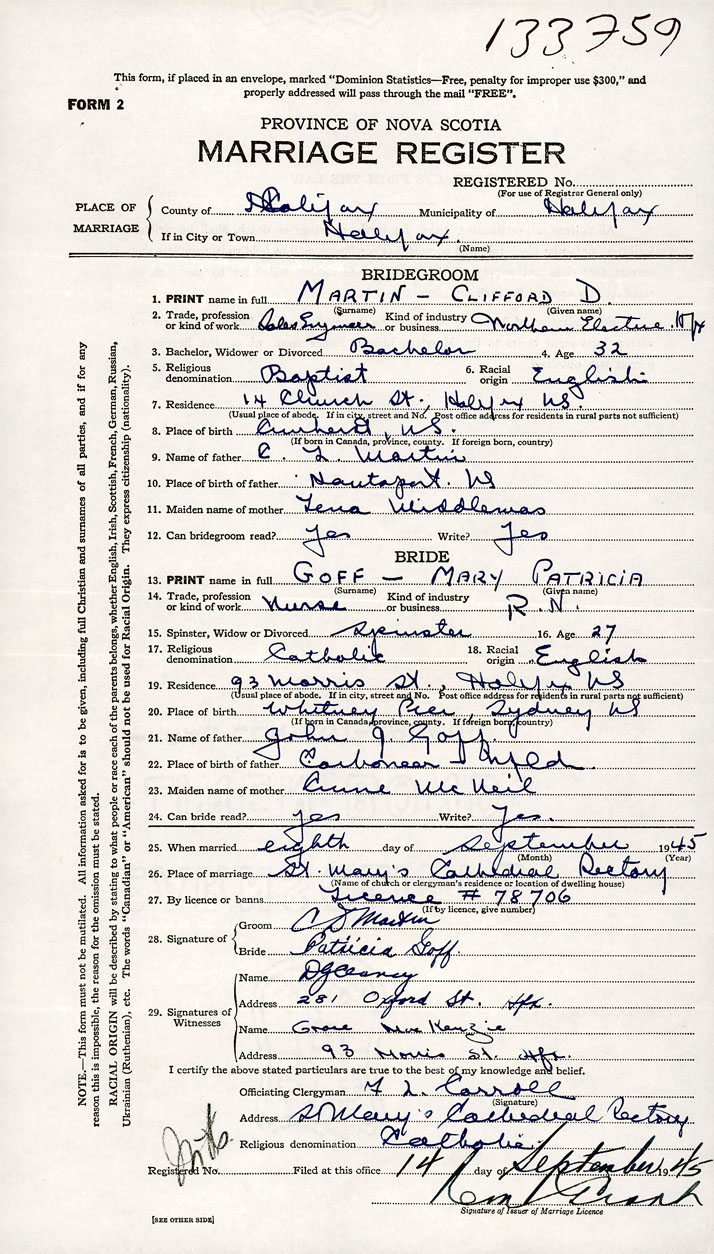 133759
This form, if placed in an envelope, marked "Dominion Statistics—Free, penalty for improper use $300," and
properly addressed will pass through the mail "FREE".
FORM 2
PROVINCE OF NOVA SCOTIA
MARRIAGE REGISTER
REGISTERED No.
(For use of Registrar General only)
PLACE OF MARRIAGE
County of Halifax Municipality of Halifax
If in City or Town Halifax
(Name)
BRIDEGROOM
1. PRINT name in full MARTIN - CLIFFORD D.
(Surname) (Given name)
2. Trade, profession or kind of work Sales Engineer Kind of industry or business Northern Electric
3. Bachelor, Widower or Divorced Bachelor 4. Age 32
5. Religious denomination Baptist 6. Racial origin English
7. Residence 14 Church St., Halifax NS.
(Usual place of abode. If in city, street and No. Post office address for residents in rural parts not sufficient)
8. Place of birth Amherst, NS.
(If born in Canada, province, county. If foreign born, country)
9. Name of father C. L. Martin
10. Place of birth of father Hantsport. NS
11. Maiden name of mother Lena Middlemas
12. Can bridegroom read? yes Write? Yes
BRIDE
13. PRINT name in full GOFF - MARY PATRICIA
(Surname) (Given name)
14. Trade, profession or kind of work Nurse Kind of industry or business R.N.
15. Spinster, Widow or Divorced Spinster 16. Age 27
17. Religious denomination Catholic 18. Racial origin English
19. Residence 93 Morris St., Halifax NS
(Usual place of abode. If in city, street and No. Post office address for residents in rural parts not sufficient)
20. Place of birth Whitney Pier, Sydney NS
(If born in Canada, province, county. If foreign born, country)
21. Name of father John J. Goff.
22. Place of birth of father Carbonear Nfld.
23. Maiden name of mother Anne McNeil
24. Can bride read? yes Write? Yes.
25. When married eighth day of September 1945
(Month) (Year)
26. Place of marriage St. Mary's Cathedral Rectory
(Name of church or clergyman's residence or location of dwelling house)
27. By licence or banns Licence # 78706
(If by licence, give number)
28. Signature of
Groom C D Martin
Bride Patricia Goff
29. Signatures of Witnesses
Name
Address 281 Oxford St. Hfx.
Name Grace MacKenzie
Address 93 Morris St. Hfx.
I certify the above stated particulars are true to the best of my knowledge and belief.
Officiating Clergyman F. L. Carroll
(Signature)
Address St Mary's Cathedral Rectory
Religious denomination Catholic
Registered No. Filed at this office 14 day of September 1945
Signature of Issuer of Marriage Licence
[SEE OTHER SIDE]
NOTE.—This form must not be mutilated. All information asked for is to be given, including full Christian and surnames of all parties, and if for any
reason this is impossible, the reason for the omission must be stated.
RACIAL ORIGIN will be described by stating to what people or race each of the parents belongs, whether English, Irish, Scottish, French, German, Russian,
Ukrainian (Ruthenian), etc. The words "Canadian" or "American" should not be used for Racial Origin. They express citizenship (nationality).